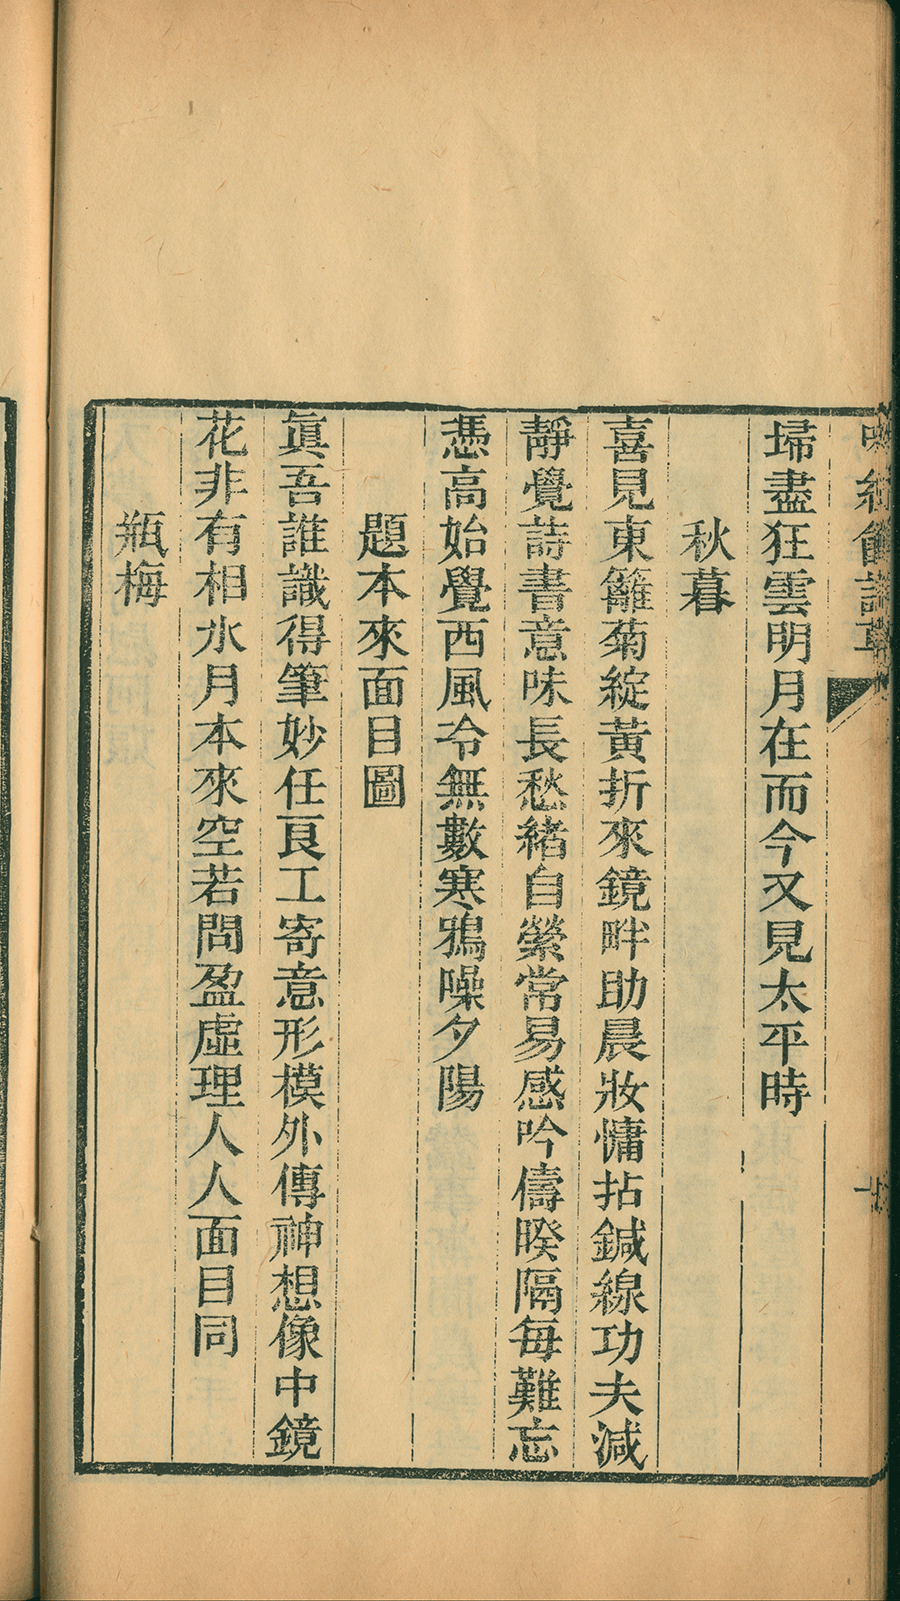 埽盡狂雲明月在而今又見太平時
秋暮
喜見東籬菊綻黃折來鏡畔助晨妝慵拈鍼線功夫減
靜覺詩書意味長愁緒自縈常易感吟儔暌隔每難忘
憑高始覺西風冷無數寒鴉噪夕陽
題本來面目圖
眞吾誰識得筆妙任良工寄意形模外傳神想像中鏡
花非有相水月本來空若問盈虛理人人面目同
瓶梅